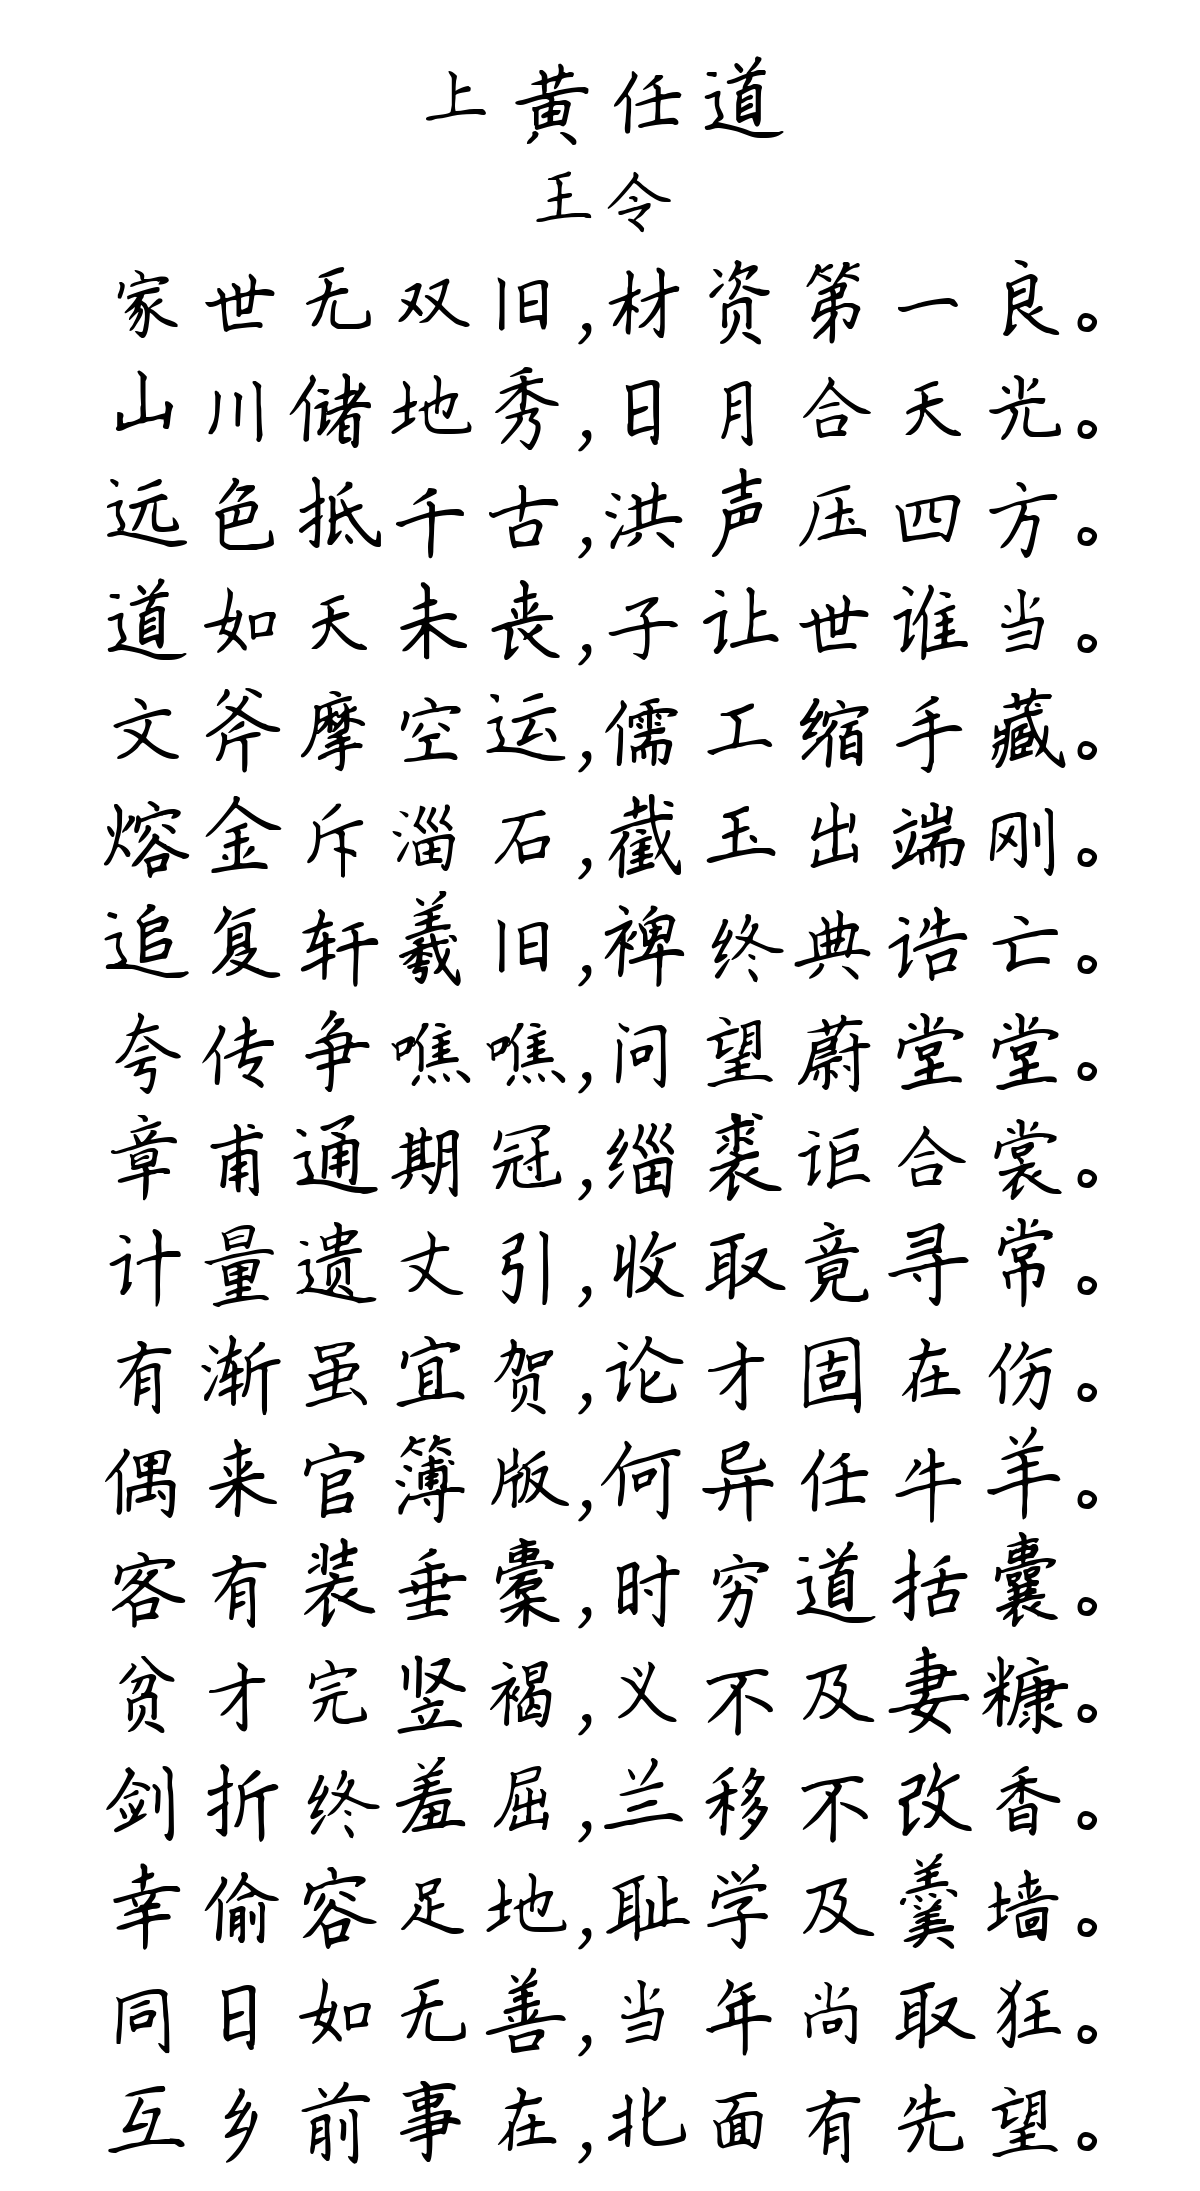 上黄任道
王令
家世无双旧,材资第一良。
山川储地秀,日月合天光。
远色抵千古,洪声压四方。
道如天未丧,子让世谁当。
文斧摩空运,儒工缩手藏。
熔金斥淄石,截玉出端刚。
追复轩羲旧,裨终典诰亡。
夸传争噍噍,问望蔚堂堂。
章甫通期冠,缁裘讵合裳。
计量遗丈引,收取竟寻常。
有渐虽宜贺,论才固在伤。
偶来官簿版,何异任牛羊。
客有装垂橐,时穷道括囊。
贫才完竖褐,义不及妻糠。
剑折终羞屈,兰移不改香。
幸偷容足地,耻学及羹墙。
同日如无善,当年尚取狂。
互乡前事在,北面有先望。